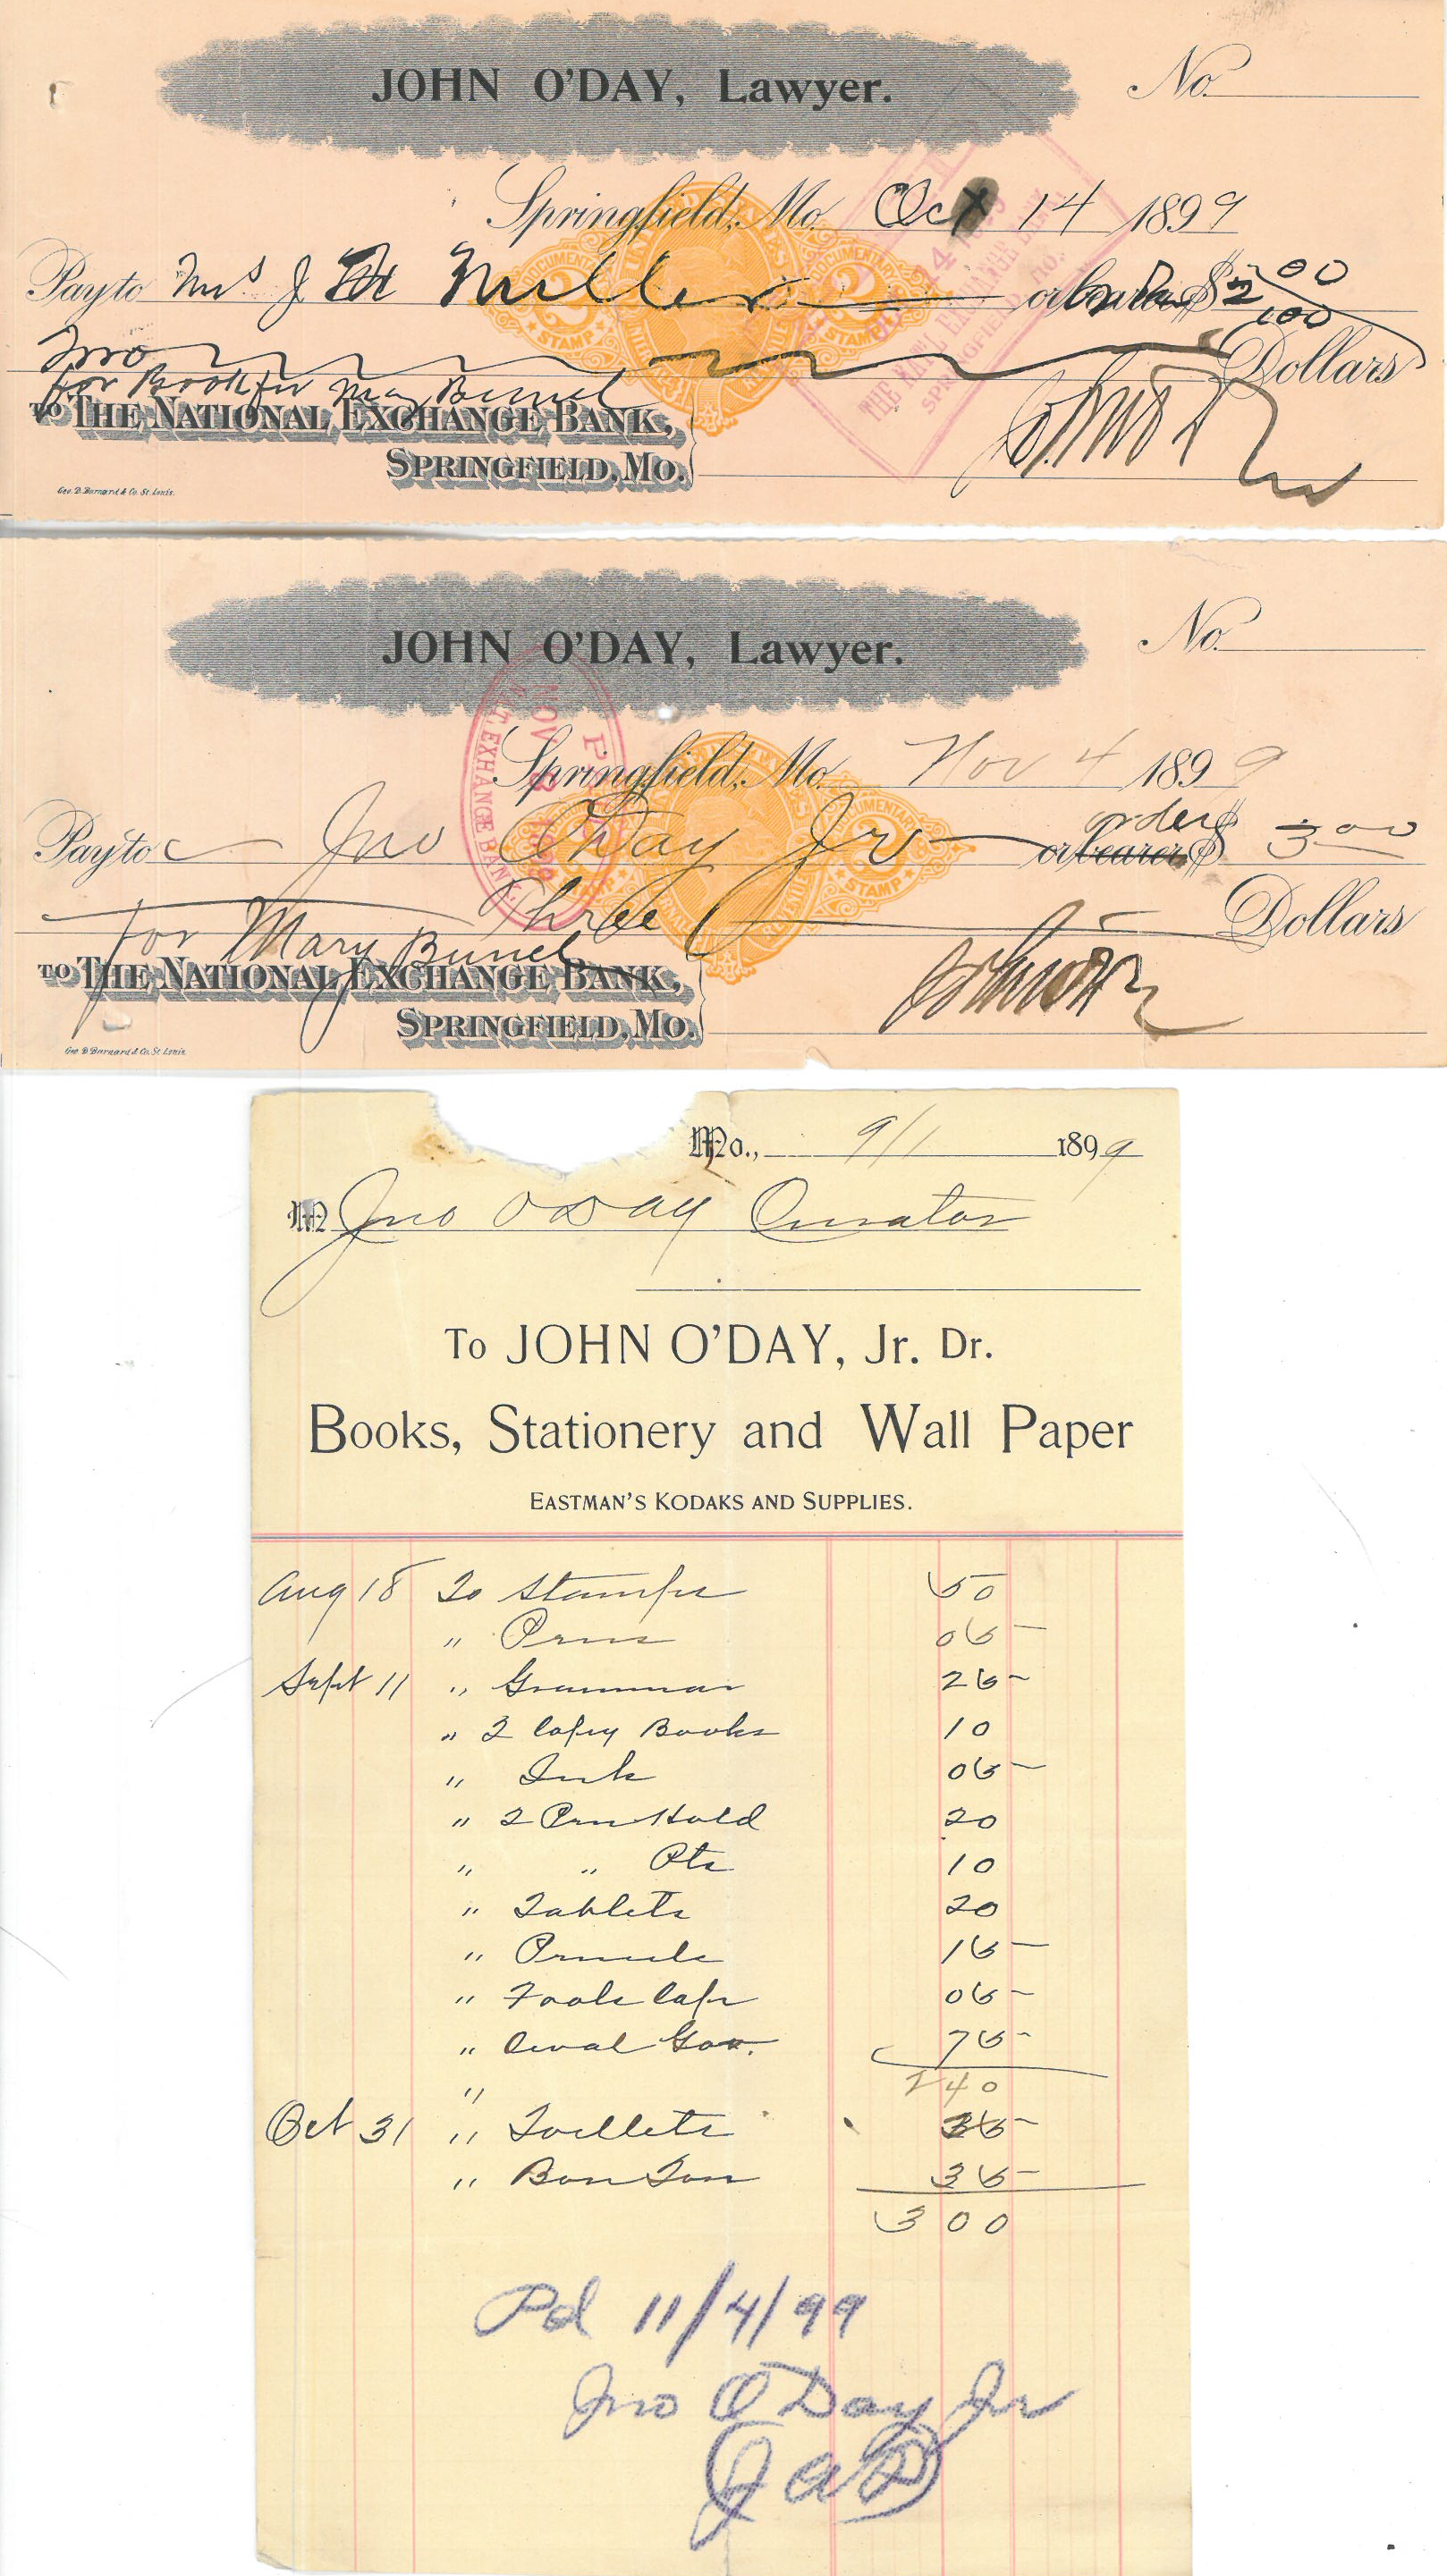 JOHN O'DAY, Lawyer.
No.
Springfield, Mo. Oct 14 1899
Pay to Mrs J H Miller or bearer $ 2 00/100
Two Dollars
for Book for May Bunel
TO THE NATIONAL EXCHANGE BANK,
SPRINGFIELD, MO.
Geo. D. Barnard & Co. St. Louis.
JOHN O'DAY, Lawyer.
No.
NOV
NAT. EXHANGE BANK
Springfield, Mo. Nov 4 1899
order
Pay to Jno O'Day Jr or bearer $ 3 00
Three Dollars
for Mary Bunel
TO THE NATIONAL EXCHANGE BANK,
SPRINGFIELD, MO.
Geo. D. Barnard & Co. St. Louis.
Mo., 9/1 1899
M Jno O Day Curator
To JOHN O'DAY, Jr. Dr.
Books, Stationery and Wall Paper
EASTMAN'S KODAKS AND SUPPLIES.
Aug 18 To Stamps 50
" Pens 05
Sept 11 " Grammar 25
" 2 Copy Books 10
" Ink 05
" 2 Pen Hold 20
" " Pts 10
" Tablets 20
" Pencils 15
" Fools Cap 05
" Civil Gov. 75
" 2 40
Oct 31 " 35
" Bon Ton 35
3 00
Pd 11/4/99
Jno O'Day Jr